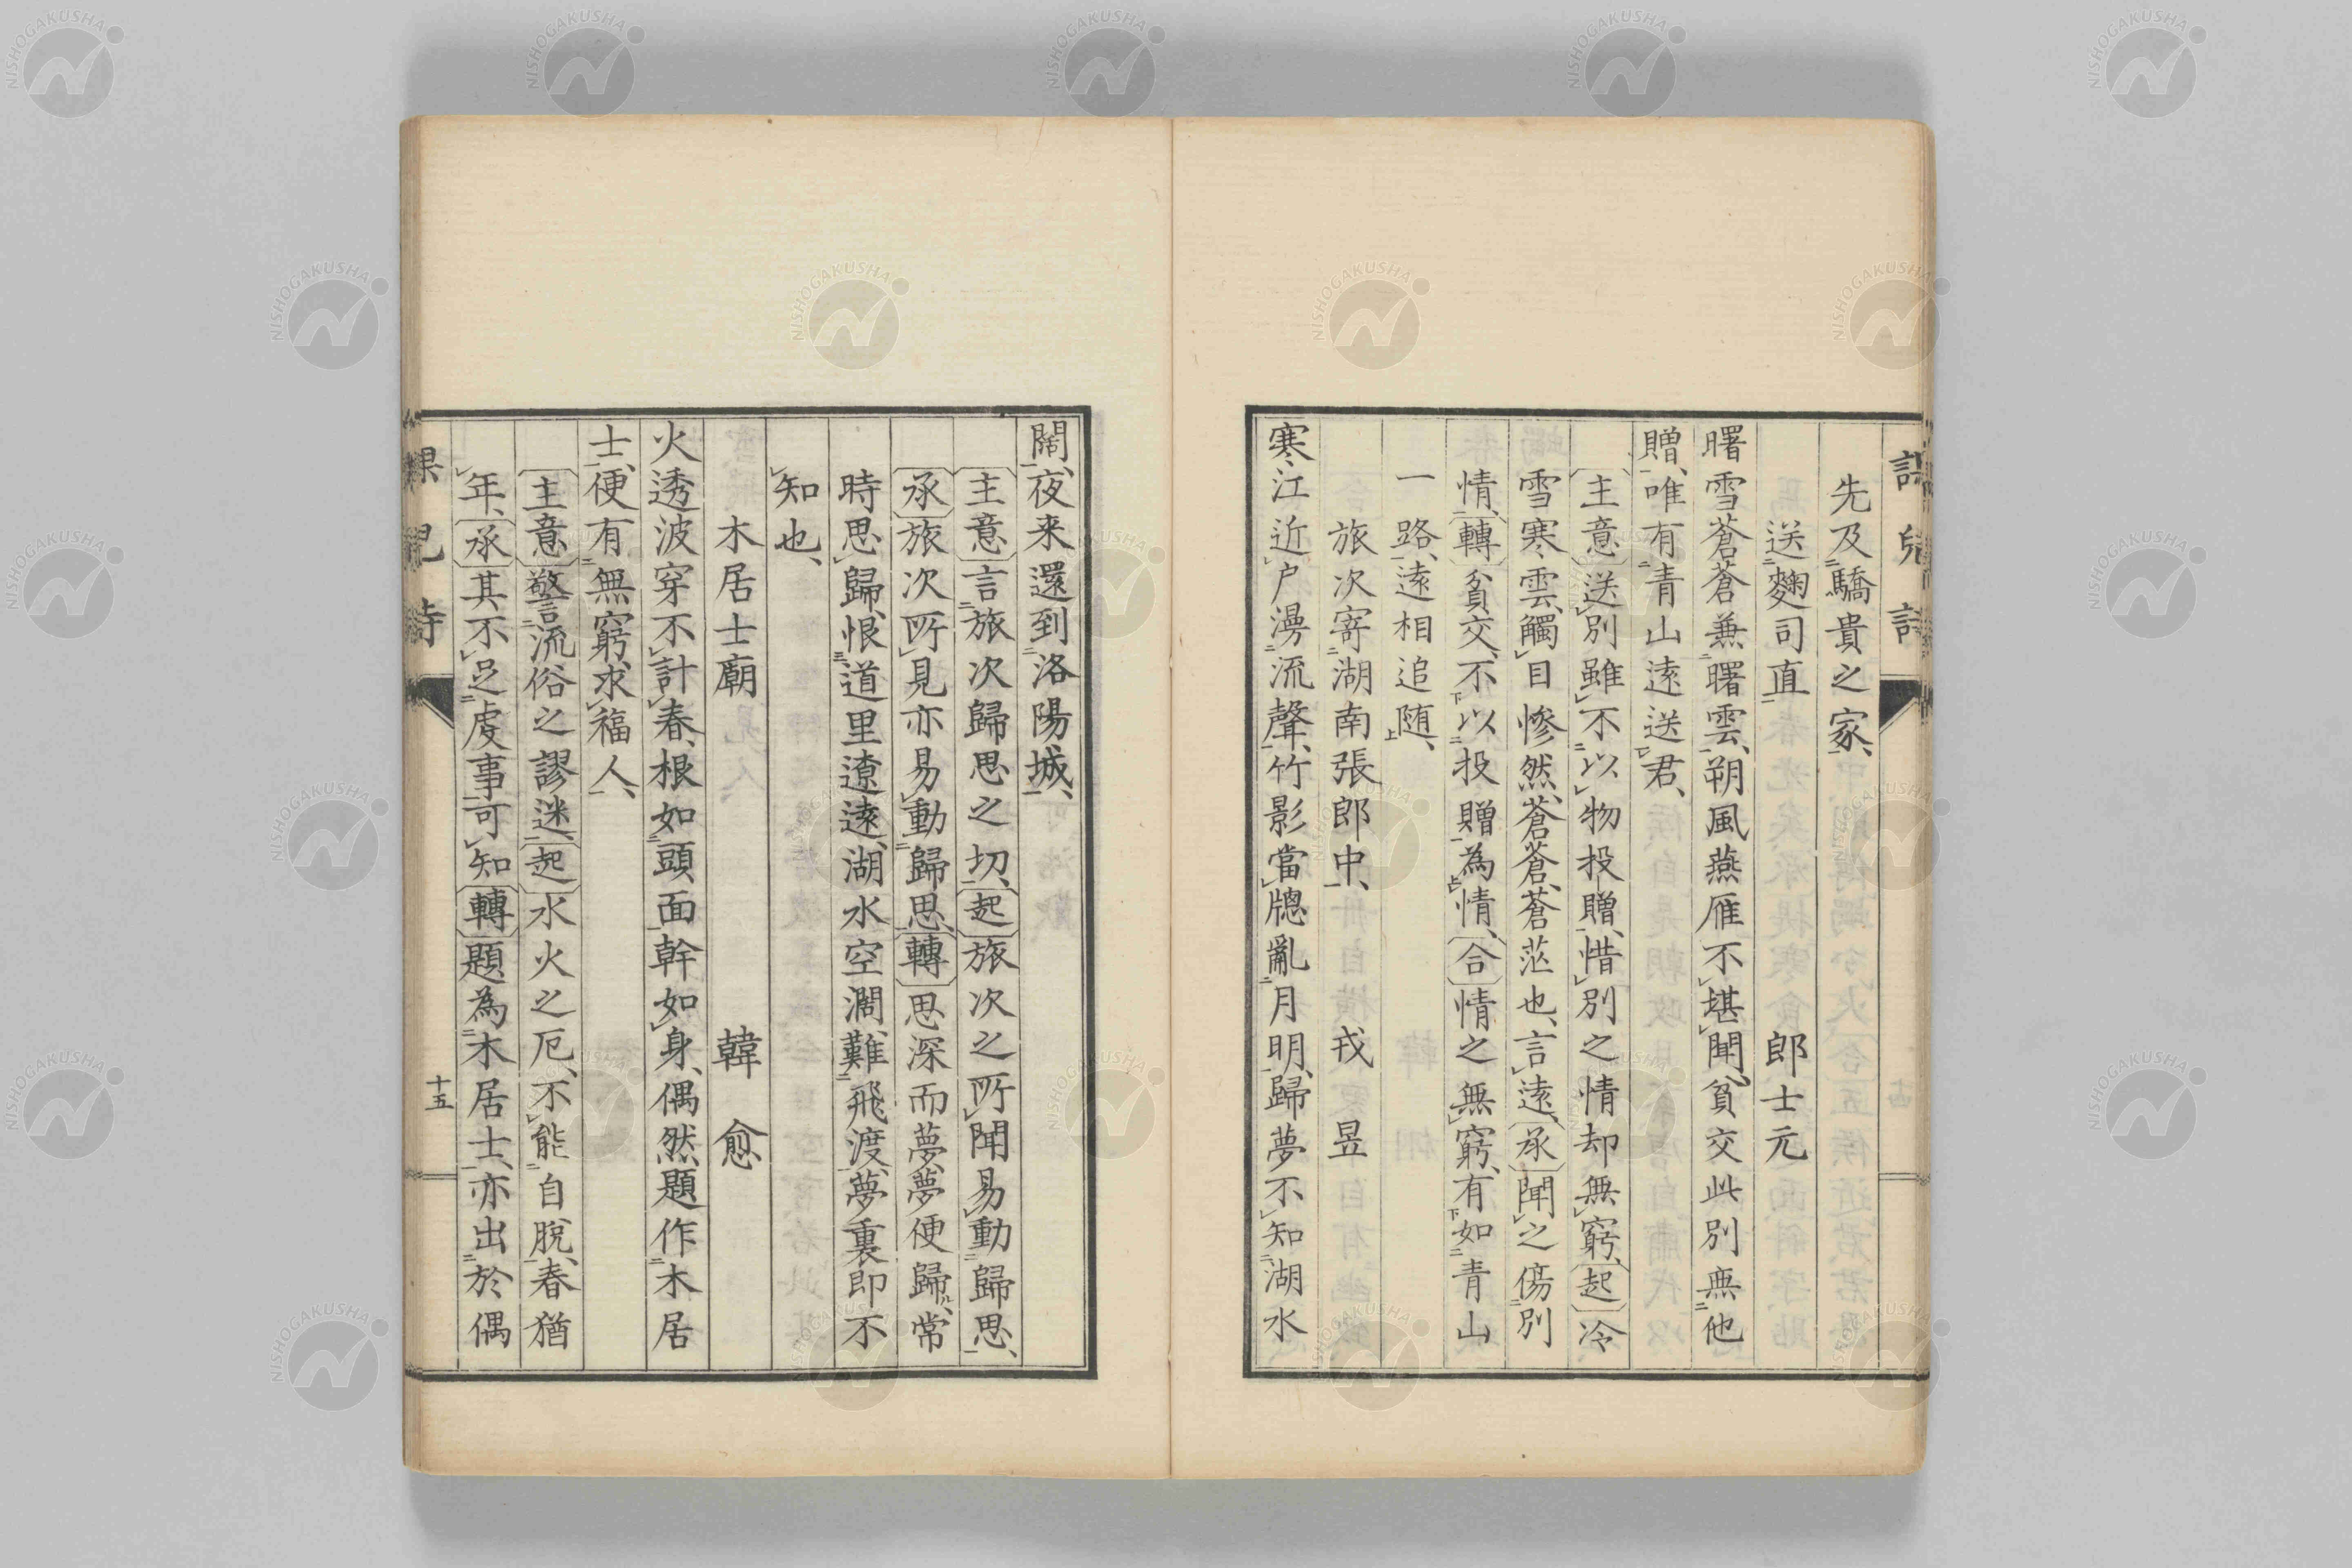 課兒詩
先及驕貴之家、
送麴司直 郎士元
曙雪蒼蒼兼曙雲、朔風燕雁不堪聞、貧交此別無他
贈、唯有青山遠送君、
〔主意〕送別雖不以物投贈、惜別之情却無窮、〔起〕冷
雪寒雲、觸目慘然、蒼蒼、蒼茫也、言遠、〔承〕聞之傷別
情、〔轉〕貧交、不以投贈為情、〔合〕情之無窮、有如青山
一路、遠相追随、
旅次寄湖南張郎中、 戎昱
寒江近户漫流聲、竹影當牕亂月明、歸夢不知湖水
闊、夜来還到洛陽城、
〔主意〕言旅次歸思之切、〔起〕旅次之所聞易動歸思、
〔承〕旅次所見亦易動歸思、〔轉〕思深而夢、夢便歸、常
時思歸、恨道里遼遠、湖水空濶、難飛渡、夢裏即不
知也、
木居士廟 韓愈
火透波穿不計春、根如頭面幹如身、偶然題作木居
士、便有無窮求福人、
〔主意〕警流俗之謬迷、〔起〕水火之厄、不能自脫、春猶
年、〔承〕其不足虔事可知〔轉〕題為木居士、亦出於偶
課兒詩
十五
NISHOGAKUSHA